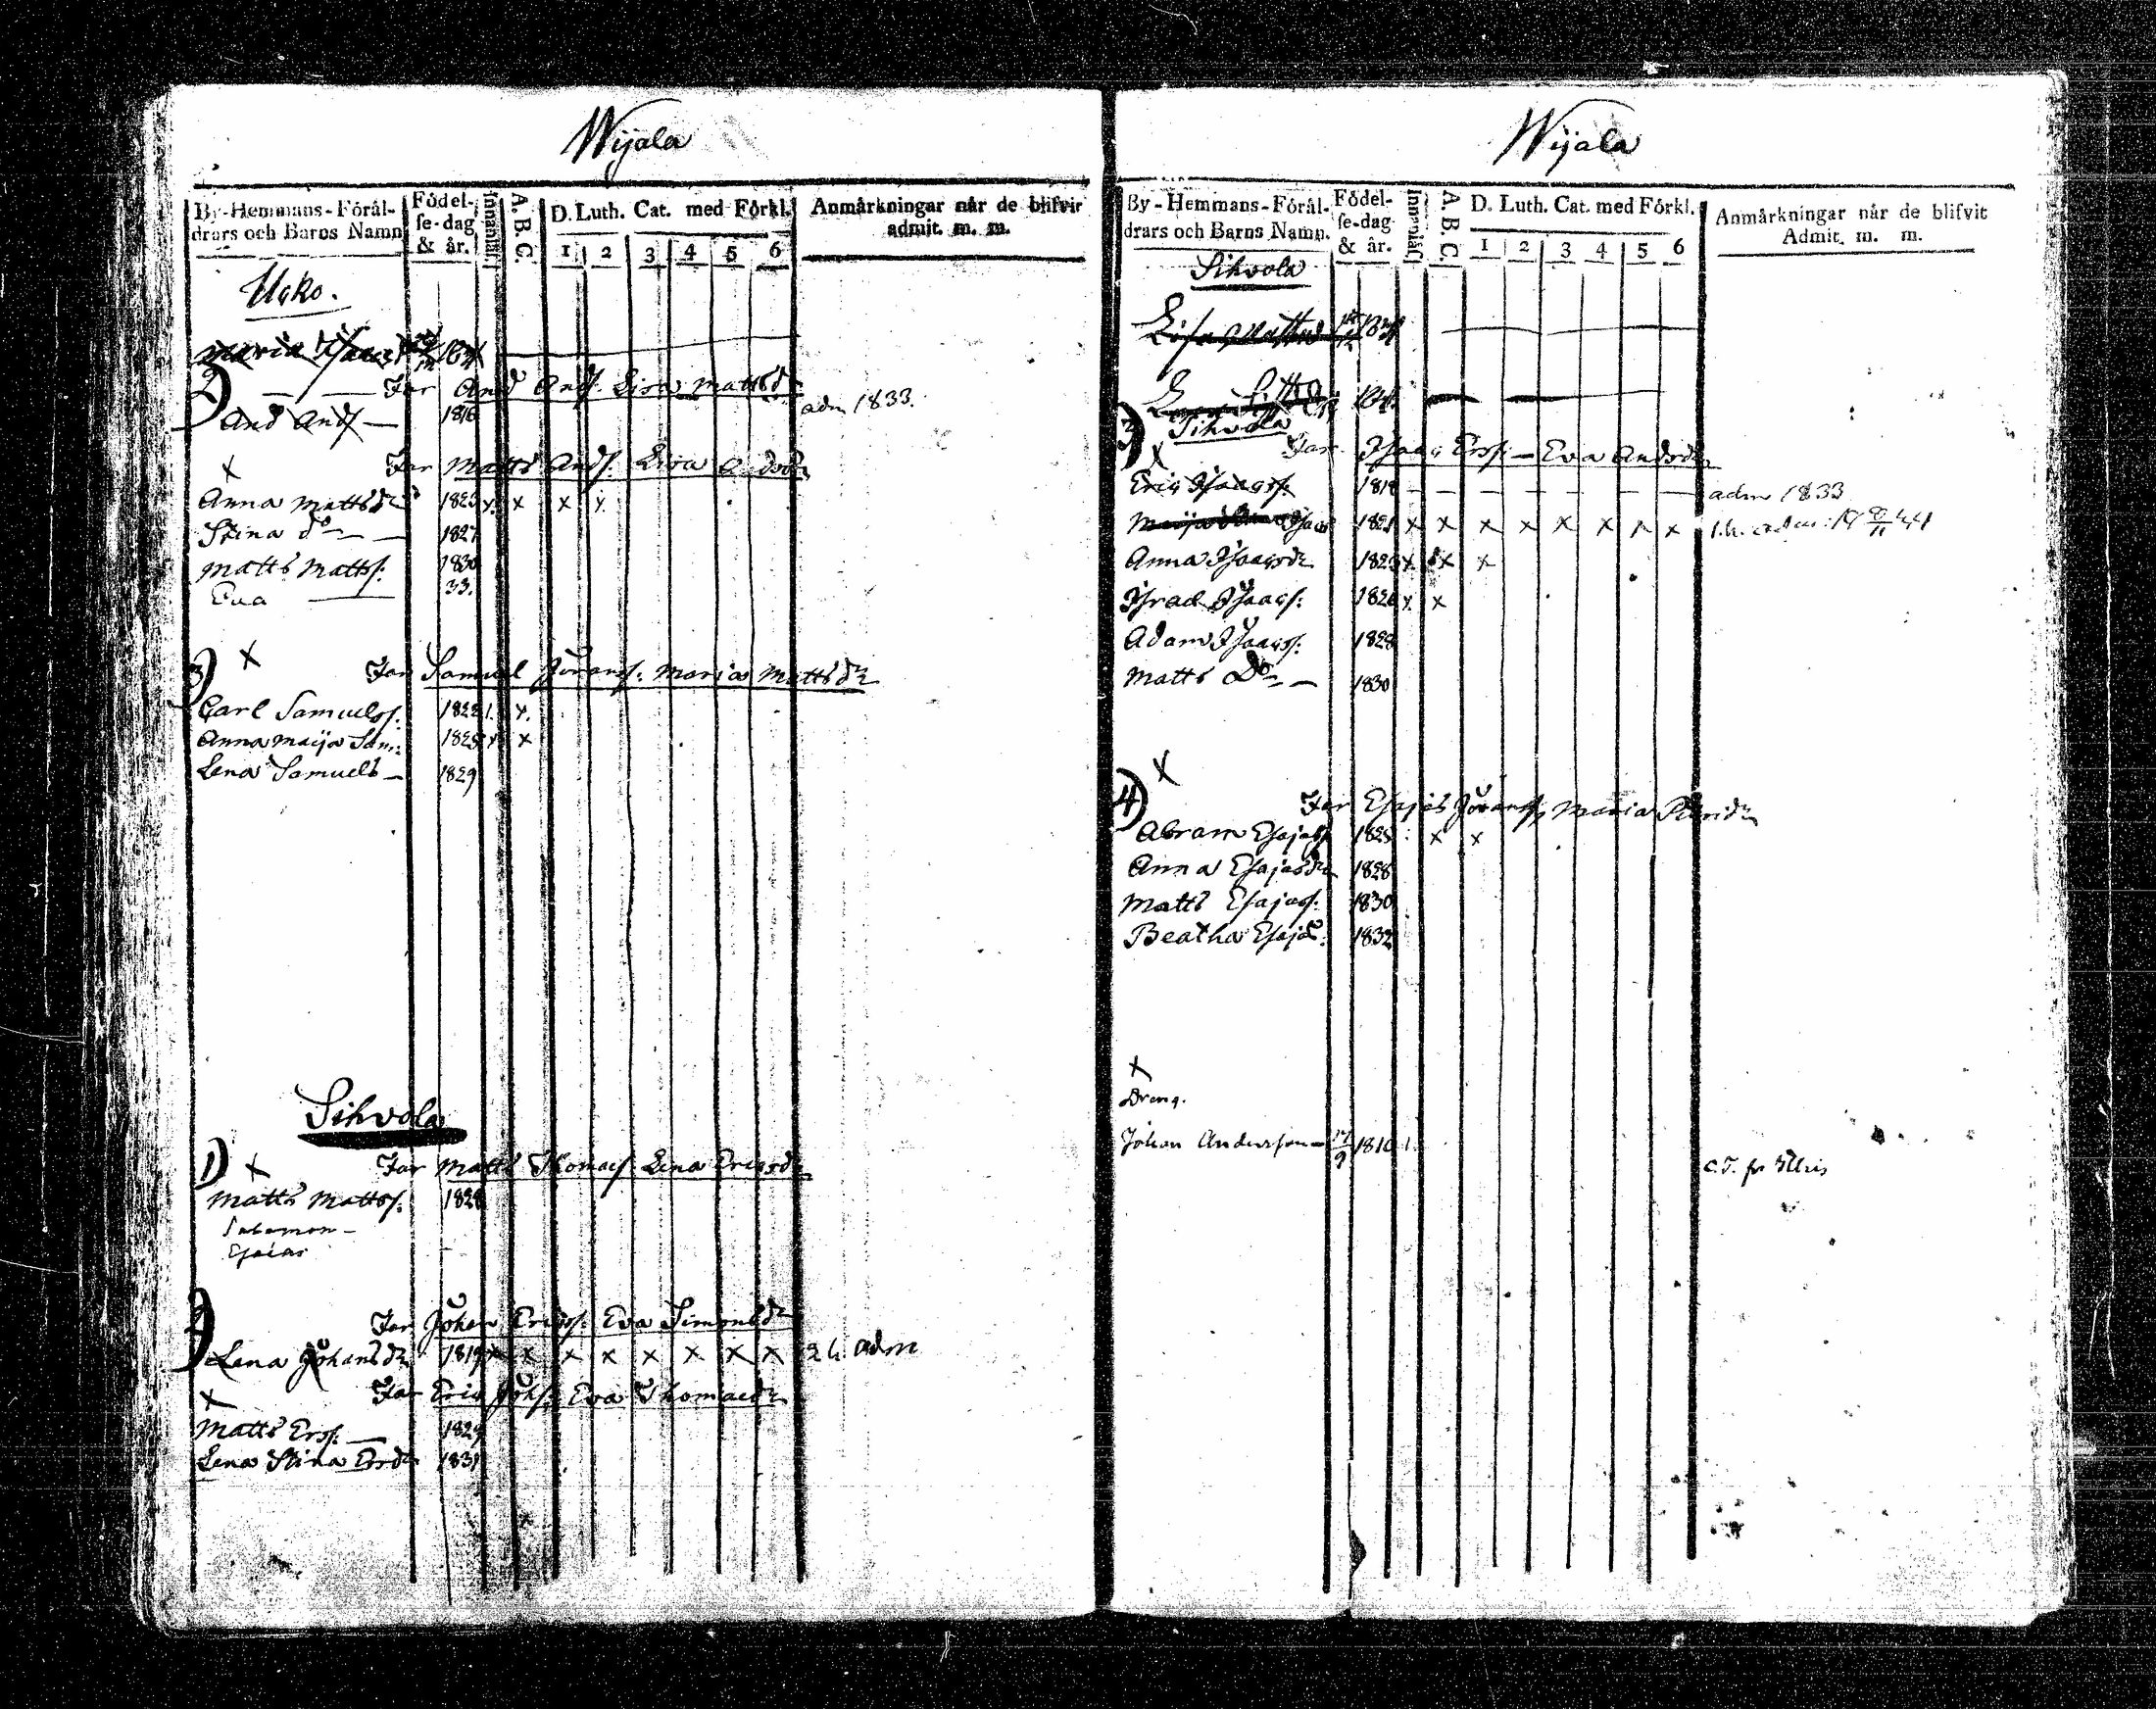 Wijala
By-Hemmans-Förål-
drars och Barns Namn
Födel-
se-dag
& år.
Innanläs.
A. B. C.
D. Luth. Cat. med Förkl.
1 2 3 4 5 6
Anmårkningar når de blifvit
admit. m. m.
Ucko.
Maria
2) — — Far And Ands. Lisa Mattsdr
And Ands — 1816 adm 1833.
x Far Matts Ands. Lisa Andsdr
Anna Mattsdr 1823 x x x x
Stina do — 1827
Matts Mattss. 1830
Eva — 33.
x
3) Far Samuel Jörans. Maria Mattsdr
Carl Samuelss. 1822 x.
Anna Maija Sam: 1825 x x
Lena Samuels — 1829
Sihvola
1) x Far Matts Thomass. Lena Ericsdr
Matts Mattss. 1828
Salomon —
Esaias
2) Far Johan Ericss. Eva Simonsdr
Lena Johansdr 1819 x x x x x x x x adm
x Far Eric Johs. Eva Thomasdr
Matts Erss. — 1829
Lena Stina Ersdr 1831
Wijala
By-Hemmans-Förål-
drars och Barns Namn.
Födel-
se-dag
& år.
Innanläs.
A. B. C
D. Luth. Cat. med Förkl.
1 2 3 4 5 6
Anmårkningar når de blifvit
Admit. m. m.
Sihvola
Lisa Mattsd
3) Sihvola
x Far Isaac Erss. — Eva Andsdr
Eric Isaacss. 1818 — — — — — — — adm 1833
Maija 1821 x x x x x x x x
Anna Isaacsdr 1823 x x x
Israel Isaacs. 1826 x x
Adam Isaacss. 1828
Matts Do — 1830
x
4) Far Esajas Jöranss. Maria
Abram Esajass 1825 x x
Anna Esajasdr 1828
Matts Esajass. 1830
Beatha Esajas: 1832
x
Dreng.
Johan Andersson — 1810